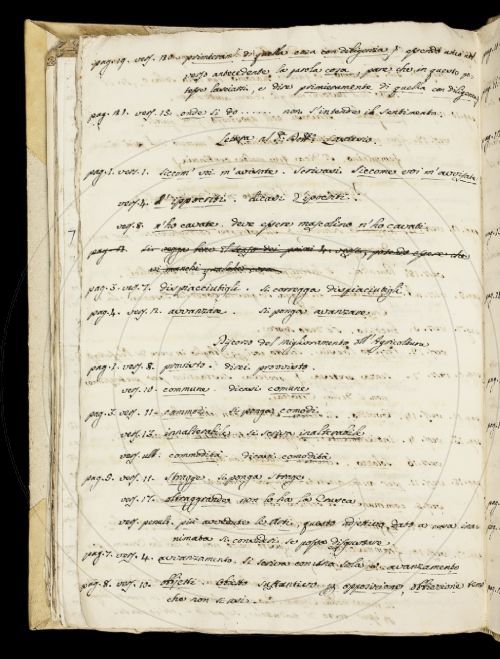 pag. 19. vers. 20. primieram.e di quella cosa con diligenza
verso antecedente la parola cosa, pare che in questo po-
tesse lasciarsi, e dire primieramente di quella con diligenza
pag. 21. vers. 15. onde si do ........ non s'intende il sentimento.
Lettera al
pag. 1. vers. 1. siccom' voi m'avisate. scrivasi siccome voi m'avvisate
vers. 4. l'ippocriti. dicasi
vers. 8. n'ho cavate deve essere mascolino n'ho cavati
pag. 3. vers. 7. dispiacciutigli. si corregga dispiaciutigli
pag. 4. vers. 12. avanzare si ponga avanzare
Discorso del miglioramento all'Agricoltura
pag. 1. vers. 8. provisto. direi provvisto.
vers. 10. commune dicasi comune
pag. 3. vers. 11. commodi si ponga comodi
vers. 13. innalterabile si scriva inalterabile
vers. ult. commodità dicasi comodità
pag. 5. vers. 11. stragge si ponga strage
vers. 17. oltraggrande non lo ha la Crusca
vers. penult. più avvedute le Arti, questo adjettivo dato a cosa ina-
nimata si consideri se possa
pag. 7. vers. 4. avvanzamento. si scriva con una sola v. avanzamento
pag. 8. vers. 10. obietti obieto sustantivo p. opposizione, obbiezione
che non si usi